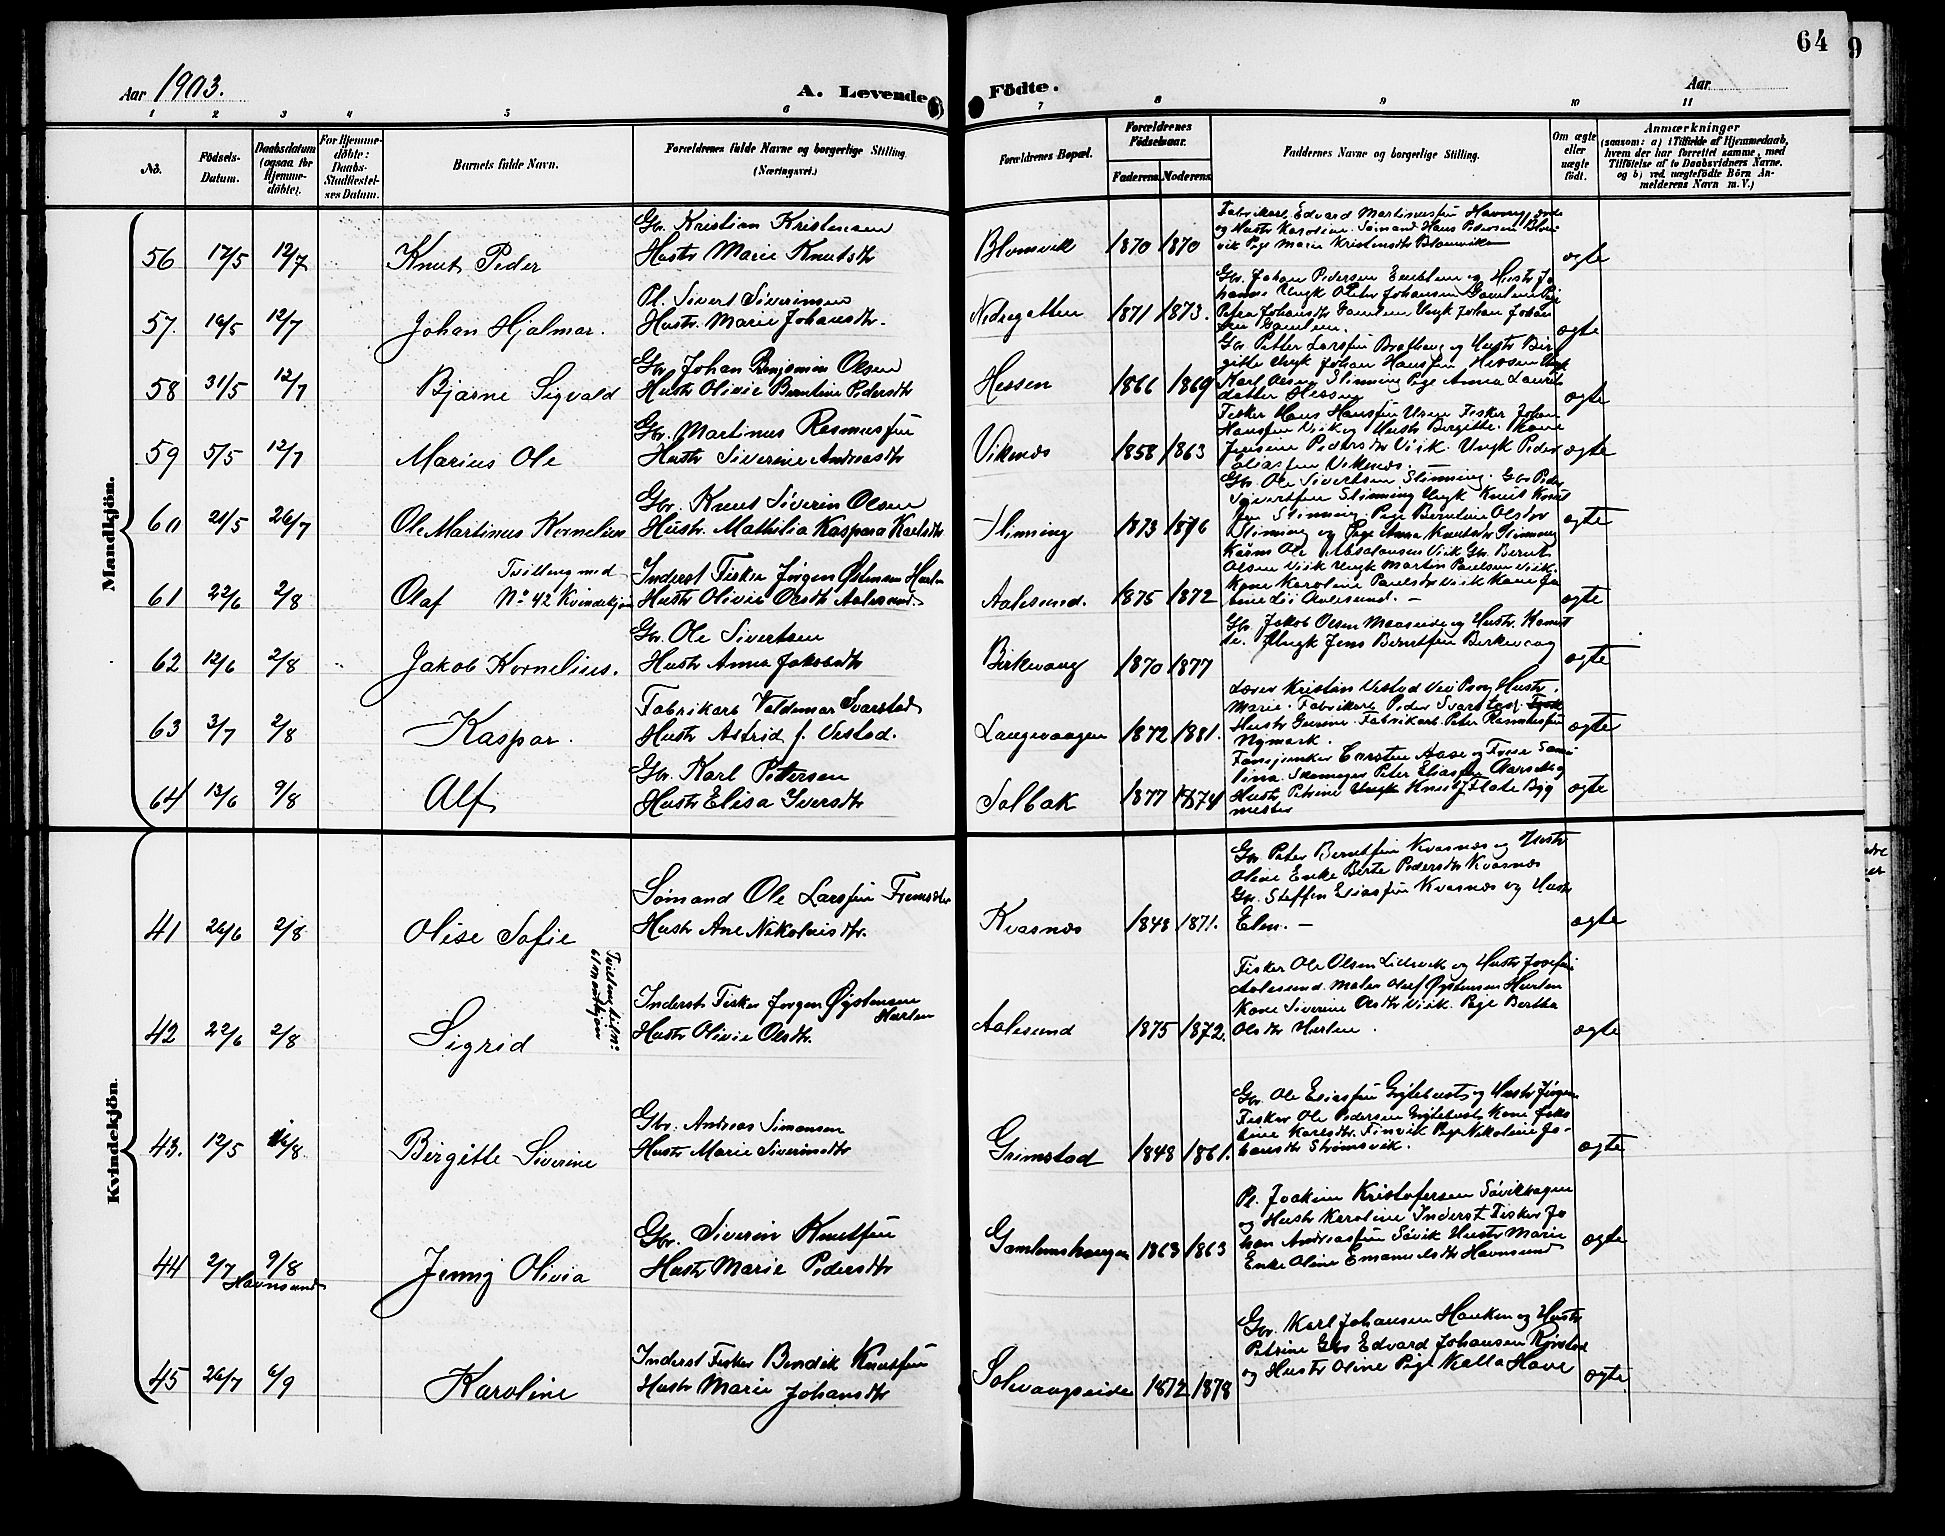 64
9
Aar 1903.
A. Levende
Födte.
Aar
1 2 3 4 5 6 7 8 9 10 11
No.
Födsels-
Datum.
Daabsdatum
(ogsaa for
Hjemme-
döbte).
For Hjemme-
döbte:
Daabs-
Stadfæstel-
ses Datum.
Barnets fulde Navn.
Forældrenes fulde Navne og borgerlige Stilling.
(Næringsvei.)
Forældrenes Bopæl.
Forældrenes
Födselsaar.
Faderens. Moderens.
Faddernes Navne og borgerlige Stilling.
Om ægte
eller
uægte
født.
Anmærkninger
(saasom: a) i Tilfælde af Hjemmedaab,
hvem der har forrettet samme, med
Tilføielse af to Daabsvidners Navne.
og b) ved uægtefødte Börn An-
melderens Navn m. V.)
Mandkjön.
56 17/5 12/7 Knut Peder
Gbr. Kristian Kristensen
Hustr Marie Knutsdtr
Blomvik 1870 1870
Fabrikarb. Edvard Martinussen
og Hustr Karoline. Sömand Hans Pedersen Blom
vik Pige Marie Kristinsdtr Blomvik
ægte
57. 16/5 12/7 Johan Hjalmar.
Pl. Sivert Siverinsen
Hustr. Marie Johansdtr.
1871 1873.
Gbr. Johan Pedersen Gamlem og Hustr Jo
hanne Ungk Peter Johansen Gamlem Pige
Petra Johansdtr Gamlem Ungk Johan Johan
sen Gamlem.
ægte
58 31/5 12/7 Bjarne Sigvald
Gbr. Johan Benjamin Olsen
Hustr Olivie Berntine Pedersdtr
Hessen 1866 1869
Gbr Petter Larssen og Hustr Bir
gitte Ungk Johan Hanssen Hessen Ungk
Karl Olsen Slinning Pige Anna Laurits
datter Hessen
ægte
59 5/5 12/7 Marius Ole
Gbr. Martinus Rasmussen
Hustr Siverine Andreasdtr
Viknes 1858 1863
Fisker Hans Hanssen Fisker Johan
Hanssen Viik og Hustr Birgitte. Kone
Jensine Pedersdtr Viik. Ungk Peder
Eliassen Viknes. —
ægte
60 21/5 26/7 Ole Martinus Kornelius
Gbr. Knut Siverin Olsen
Hustr. Mathilia Kaspara Karlsdtr
Slinning 1873 1876
Gbr. Ole Sivertsen Slinning. Gbr Peder
Sivertsen Slinning Ungk Knut Knut
sen Slinning. Pige Berntine Olsdtr
Slinning og Pige Anna Knutsdtr Slinning
ægte
61 22/6 2/8 Olaf
Tvilling med
No 42 Kvindekjön
Inderst Fisker Jörgen Østensen Harlem
Hustr Olivie Olsdtr Aalesund.
Aalesund. 1875 1872
Ole Absalonsen Viik Gbr. Bernt
Olsen Viik Ungk Martin Paulsen Viik.
Kone Karoline Paulsdtr Viik Kone
Aalesund. —
ægte
62 12/6 2/8 Jakob Kornelius.
Gbr. Ole Sivertsen
Hustr Anna Jakobsdtr
Birkevaag 1870 1877
Gbr Jakob Olsen og Hustr
Ungk Jens Berntsen Birkevaag
ægte
63 3/7 2/8 Kaspar.
Fabrikarb Valdemar Svarstad
Hustr Astrid f. Vestad.
Langevaagen 1872 1881.
Lærer Kristian Vestad Hustr.
Marie. Fabrikarb. Peder Svarstad.
Hustr Gurine. Fabrikarb. Peter Rasmussen
Nymark.
ægte
64 13/6 9/8 Alf
Gbr. Karl Petersen
Hustr Elisa Iversdtr
Solbak 1877 1874
Carsten Aase og Frue
Skomager Peter Eliassen Aarseth og
Hustr Petrine Ungk Knut Flate Byg
mester
ægte
Kvindekjön.
41 26/6 2/8 Olise Sofie
Sømand Ole Larssen
Hustr Ane Nikolaisdtr.
Kvasnes 1848 1871.
Gbr. Peter Berntsen Kvasnes og Hustr
Oline Enke Berte Pedersdtr Kvasnes
Gbr. Steffen Eliassen Kvasnes og Hustr
Elen. —
ægte
42 22/6 2/8 Sigrid
Tvilling til No
61 mandkjön
Inderst Fisker Jörgen Østensen
Harlem
Hustr Olivie Olsdtr.
Aalesund 1875 1872.
Fisker Ole Olsen og Hustr Josefine
Aalesund. Maler Oluf Østensen Harlem
Kone Siverine Olsdtr Viik. Pige Bertha
Olsdtr Harlem.
ægte
43. 12/5 16/8 Birgitte Siverine
Gbr. Andreas Simonsen
Hustr Marie Siverinsdtr
Grimstad 1848 1861.
Gbr. Ole Eliassen og Hustr Jörgine
Fisker Ole Pedersen Kone Jako
bine Karlsdtr. Pige Nikoline Jo-
hansdtr Strømsvik.
ægte
44 2/7 9/8 Jenny Olivia
Havnsund
Gbr. Siverin Knutsen
Hustr Marie Pedersdtr
Gamlemshaugen 1863 1863
Pl. Joakim Kristofersen Søvikhagen
og Hustr Karoline Inderst Fisker Jo
han Andreassen Søvik Hustr Marie
Enke Oline Emanuelsdtr Havnsund
ægte
45 26/7 6/9 Karoline
Inderst Fisker Bendik Knutsen
Hustr Marie Johansdtr
Solevaagseide 1872 1878
Gbr. Karl Johansen Hauken og Hustr
Petrine Gbr Edvard Johansen
og Hustr Oline Pige Kalla
ægte